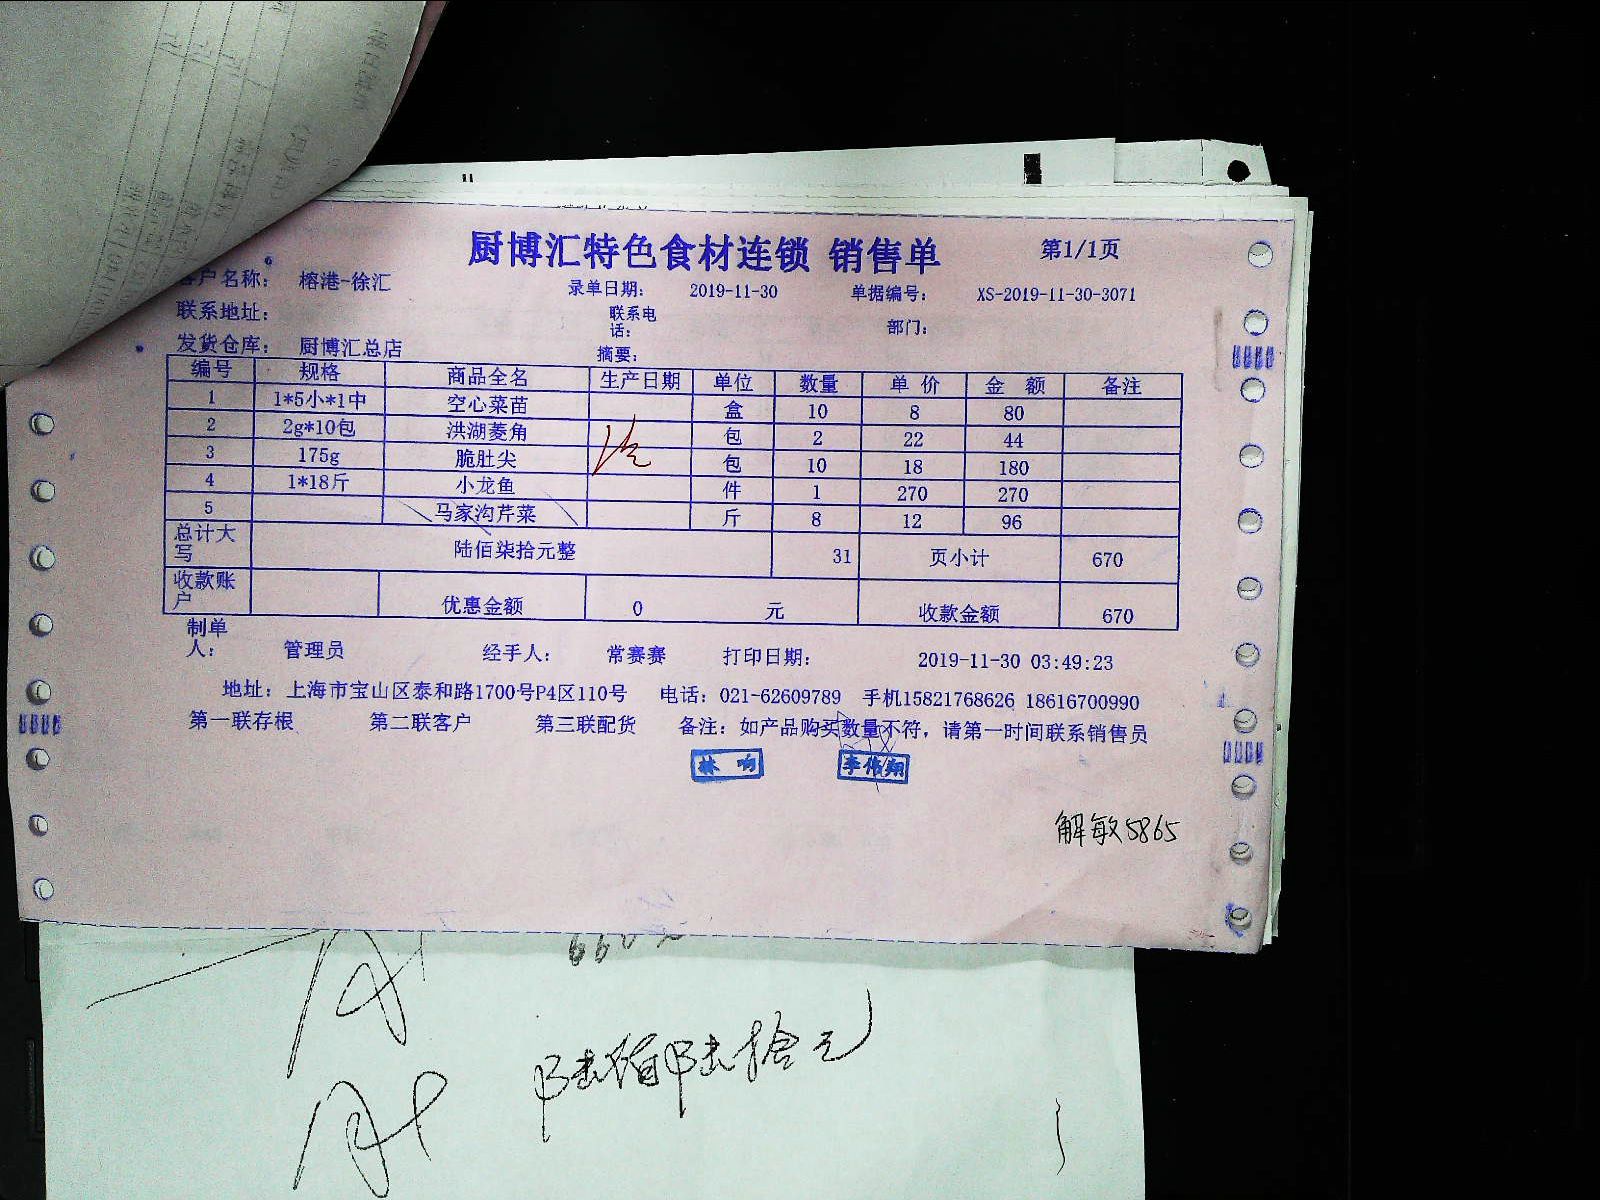 厨博汇特色食材连锁 销售单 第1/1页
客户名称： 榕港-徐汇 录单日期： 2019-11-30 单据编号： XS-2019-11-30-3071
联系地址： 联系电话： 部门：
发货仓库： 厨博汇总店 摘要：
编号 规格 商品全名 生产日期 单位 数量 单 价 金 额 备注
1 1*5小*1中 空心菜苗 盒 10 8 80
2 2g*10包 洪湖菱角 包 2 22 44
3 175g 脆肚尖 包 10 18 180
4 1*18斤 小龙鱼 件 1 270 270
5 马家沟芹菜 斤 8 12 96
总计大写 陆佰柒拾元整 31 页小计 670
收款账户 优惠金额 0 元 收款金额 670
制单人： 管理员 经手人： 常赛赛 打印日期： 2019-11-30 03:49:23
地址：上海市宝山区泰和路1700号P4区110号 电话：021-62609789 手机15821768626 18616700990
第一联存根 第二联客户 第三联配货 备注：如产品购买数量不符，请第一时间联系销售员
林 响 李伟翔
解敏5865
陆佰陆拾元